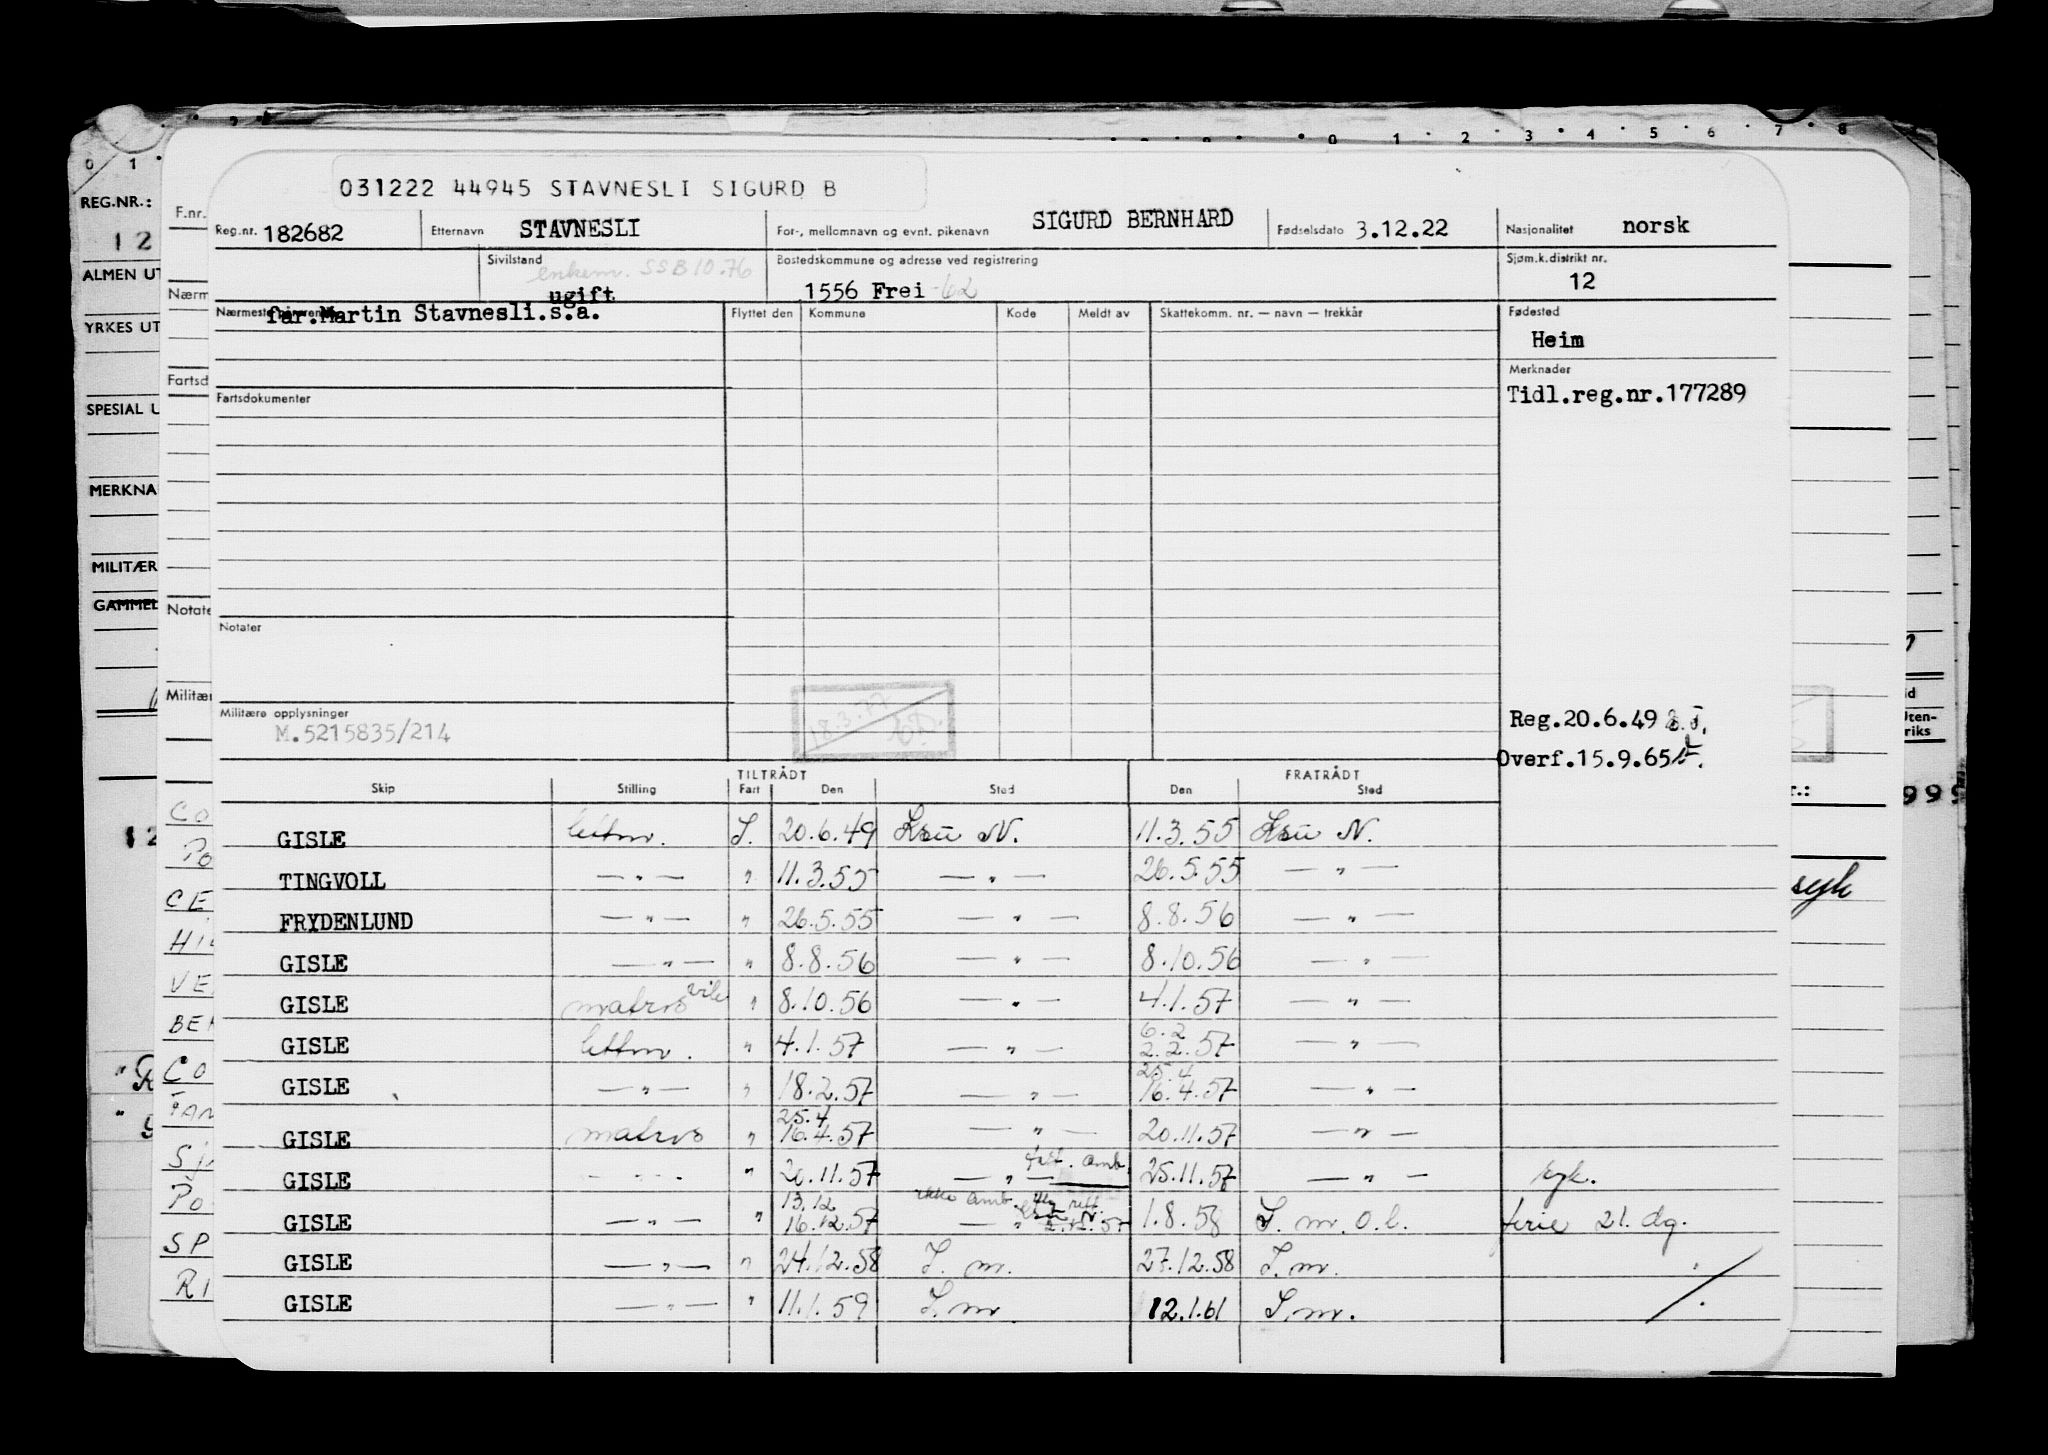 0 1 2 3 4 5 6 7 8
0 1
031222 44945 STAVNESLI SIGURD B
REG.NR.:
12
F.nr.
Reg.nr. 182682 Etternavn STAVNESLI For-, mellomnavn og evnt. pikenavn SIGURD BERNHARD Fødselsdato 3.12.22 Nasjonalitet norsk
ALMEN UT
Sivilstand enkem. SSB 10.76 ugift Bostedskommune og adresse ved registrering 1556 Frei -62 Sjøm.k.distrikt nr. 12
Nærm
YRKES UT
Nærmeste far.Martin Stavnesli.s.a. Flyttet den Kommune Kode Meldt av Skattekomm. nr. — navn — trekkår Fødested
Heim
Merknader
Tidl.reg.nr.177289
Fartsd
SPESIAL U
Fartsdokumenter
MERKNA
MILITÆR
GAMMEL
Notate
Notater
Militær
Militære opplysninger
M.5215835/214
18.3.77
Reg.20.6.49
Overf.15.9.65
id
Uten-
riks
r.:
999
TILTRÅDT FRATRÅDT
Skip Stilling Fart Den Sted Den Sted
GISLE lettm. I. 20.6.49 Ksu N. 11.3.55 Ksu N.
TINGVOLL — " — " 11.3.55 — " — 26.5.55 — " —
FRYDENLUND — " — " 26.5.55 — " — 8.8.56 — " —
GISLE — " — " 8.8.56 — " — 8.10.56 — " —
GISLE matros " 8.10.56 — " — 4.1.57 — " —
GISLE lettm. " 4.1.57 — " — 6.2 2.2.57 — " —
GISLE — " — " 18.2.57 — " — 25.4 16.4.57 — " —
GISLE matros " 25.4 16.4.57 — " — 20.11.57 — " —
GISLE — " — " 20.11.57 — " — amb. 25.11.57 — " — syk.
GISLE — " — " 13.12 16.12.57 ikke amb. — " — 2.12.57 1.8.58 I. m. o.l. ferie 21. dg.
GISLE — " — " 24.12.58 I. m. 27.12.58 I. m.
GISLE — " — " 11.1.59 I. m. 12.1.61 I. m.
CO
PO
CE
VE
BE
CO
PO
SP
RI
12
syk